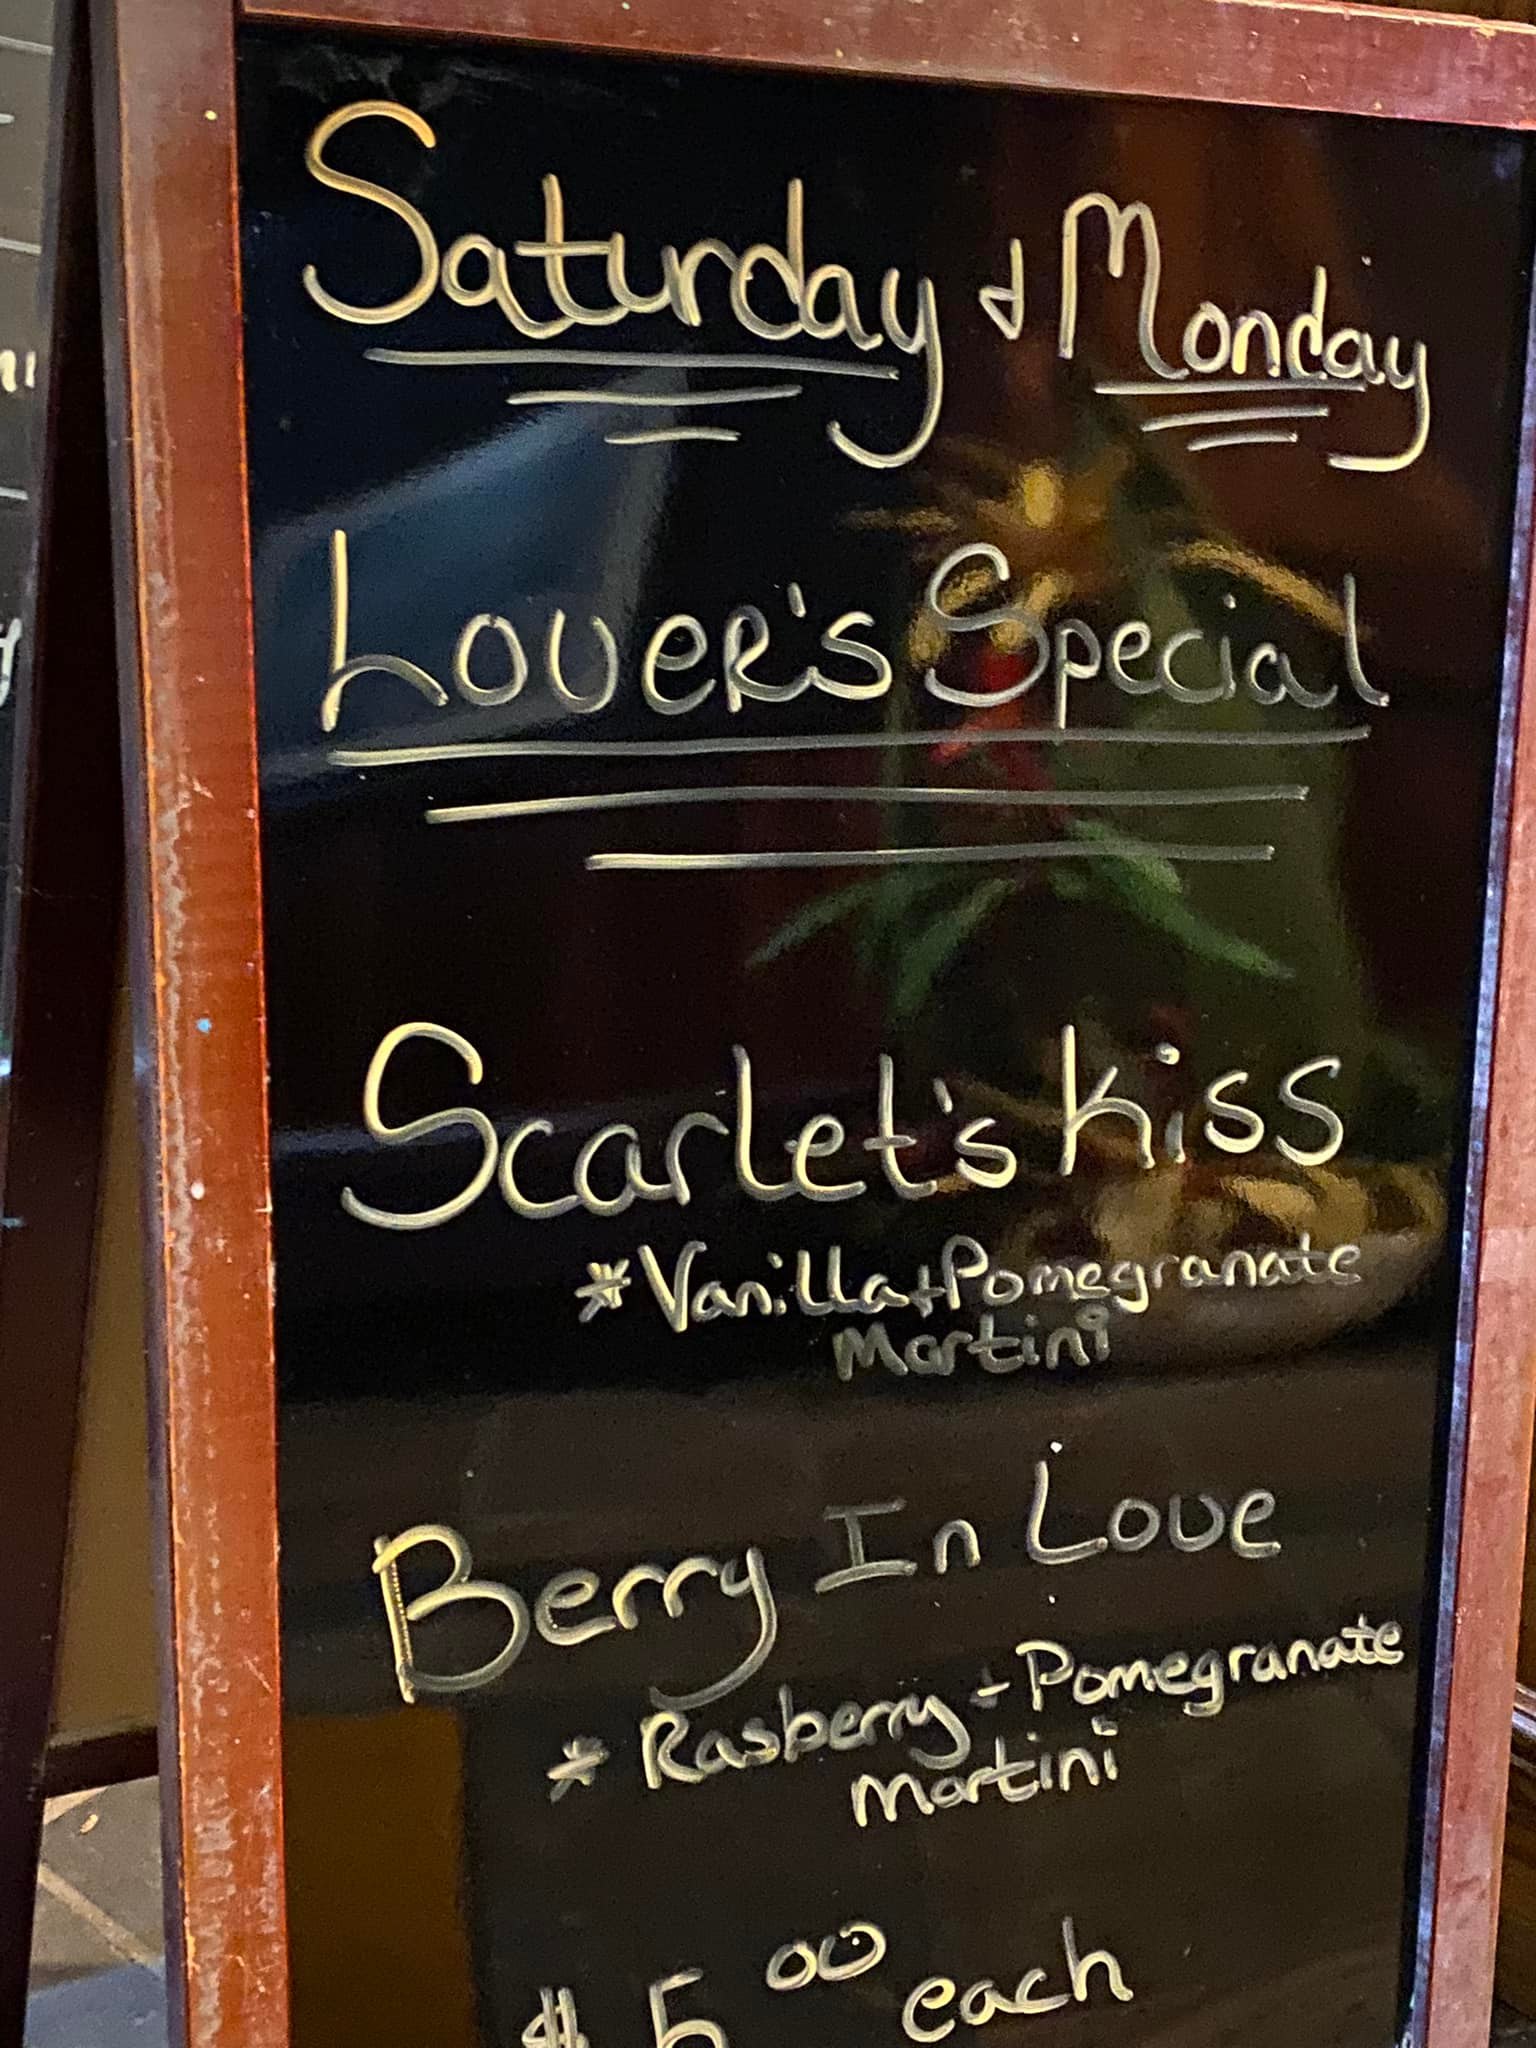 Saturday & Monday
Lover's Special
Scarlet's Kiss
*Vanilla + Pomegranate
Martini
Berry In Love
* Rasberry + Pomegranate
Martini
$5.00 each